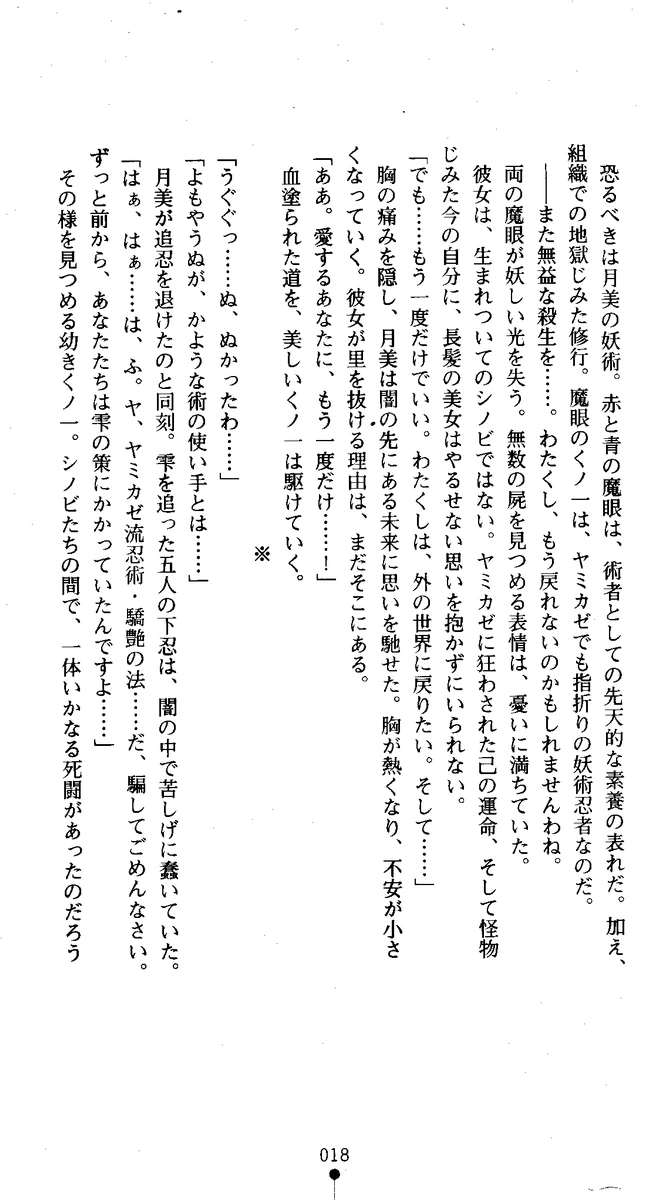 恐るべきは月美の妖術。赤と青の魔眼は、術者としての先天的な素養の表れだ。加え、
組織での地獄じみた修行。魔眼のくノ一は、ヤミカゼでも指折りの妖術忍者なのだ。
――また無益な殺生を……。わたくし、もう戻れないのかもしれませんわね。
両の魔眼が妖しい光を失う。無数の屍を見つめる表情は、憂いに満ちていた。
彼女は、生まれついてのシノビではない。ヤミカゼに狂わされた己の運命、そして怪物
じみた今の自分に、長髪の美女はやるせない思いを抱かずにいられない。
「でも……もう一度だけでいい。わたくしは、外の世界に戻りたい。そして……」
胸の痛みを隠し、月美は闇の先にある未来に思いを馳せた。胸が熱くなり、不安が小さ
くなっていく。彼女が里を抜ける理由は、まだそこにある。
「ああ。愛するあなたに、もう一度だけ……！」
血塗られた道を、美しいくノ一は駆けていく。
※
「うぐぐっ……ぬ、ぬかったわ……」
「よもやうぬが、かような術の使い手とは……」
月美が追忍を退けたのと同刻。雫を追った五人の下忍は、闇の中で苦しげに蠢いていた。
「はぁ、はぁ……は、ふ。ヤ、ヤミカゼ流忍術・驕艶の法……だ、騙してごめんなさい。
ずっと前から、あなたたちは雫の策にかかっていたんですよ……」
その様を見つめる幼きくノ一。シノビたちの間で、一体いかなる死闘があったのだろう
018